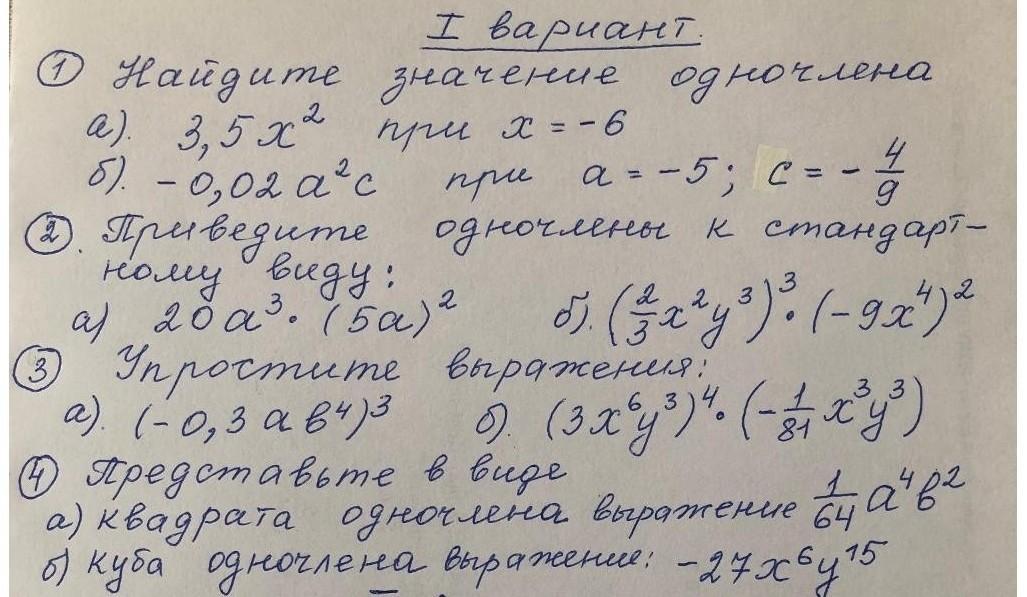 I вариант.
① Найдите значение одночлена
а). 3,5x² при x = -6
б). -0,02a²c при a = -5; c = -4/9
②. Приведите одночлены к стандарт-
ному виду:
а) 20a³·(5a)² б). (2/3x²y³)³·(-9x⁴)²
③ Упростите выражения:
а). (-0,3ab⁴)³ б). (3x⁶y³)⁴·(-1/81x³y³)
④ Представьте в виде
а) квадрата одночлена выражение 1/64a⁴b²
б) куба одночлена выражение: -27x⁶y¹⁵